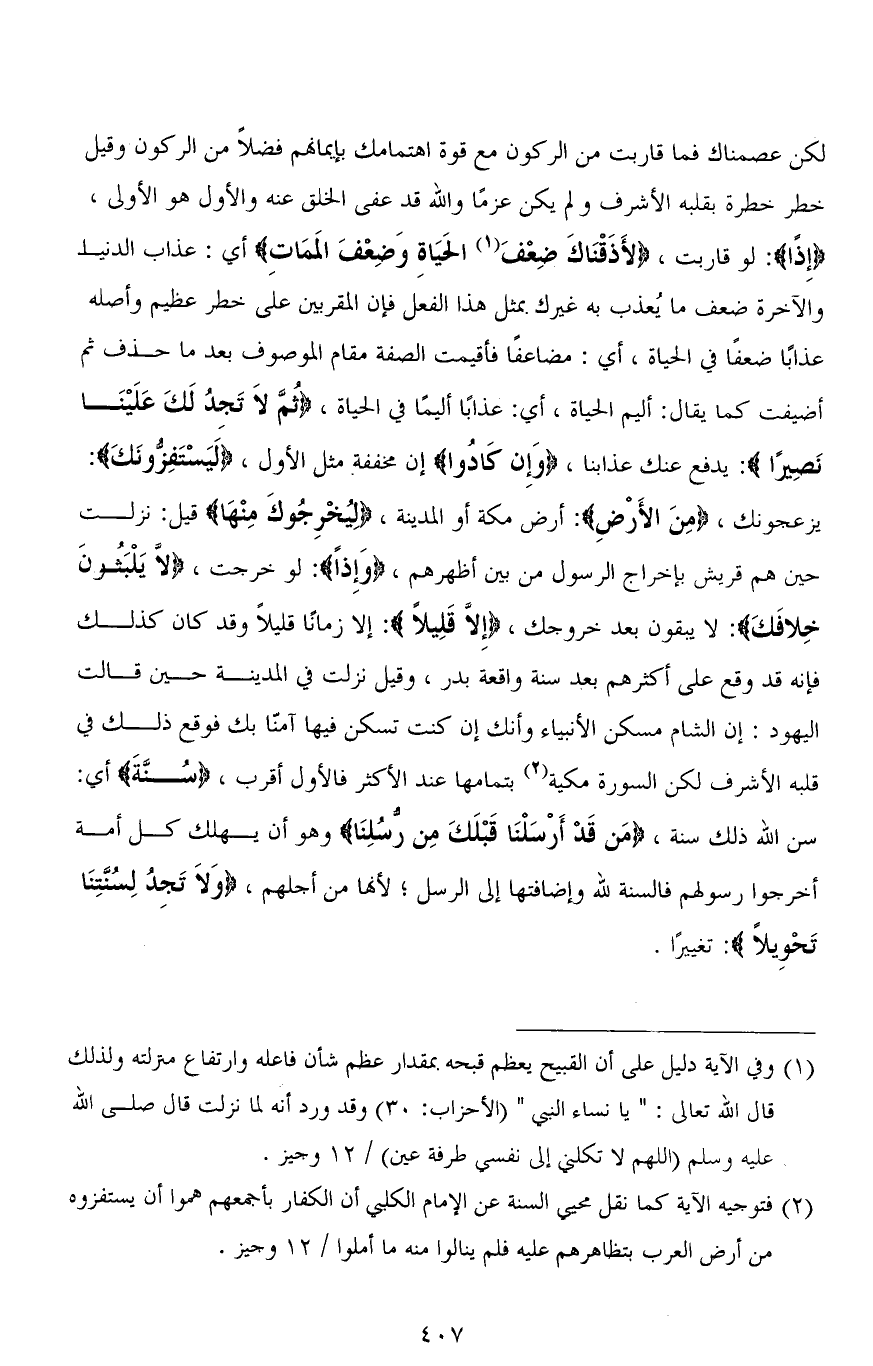 لكن عصمناك فما قاربت من الركون مع قوة اهتمامك بإيمانهم فضلاً من الركون وقيل
خطر خطرة بقلبه الأشرف و لم يكن عزمًا والله قد عفى الخلق عنه والأول هو الأولى ،
﴿إِذًا﴾: لو قاربت ، ﴿لأَذَقْنَاكَ ضِعْفَ(١) الحَيَاةِ وَضِعْفَ المَمَاتِ﴾ أي : عذاب الدنيا
والآخرة ضعف ما يُعذب به غيرك بمثل هذا الفعل فإن المقربين على خطر عظيم وأصله
عذابًا ضعفًا في الحياة ، أي : مضاعفًا فأقيمت الصفة مقام الموصوف بعد ما حـذف ثم
أضيفت كما يقال: أليم الحياة ، أي: عذابًا أليمًا في الحياة ، ﴿ثُمَّ لاَ تَجِدُ لَكَ عَلَيْنَـــا
نَصِيرًا ﴾: يدفع عنك عذابنا ، ﴿وَإِن كَادُوا﴾ إن مخففة مثل الأول ، ﴿لَيَسْتَفِزُّونَكَ﴾:
يزعجونك ، ﴿مِنَ الأَرْضِ﴾: أرض مكة أو المدينة ، ﴿لِيُخْرِجُوكَ مِنْهَا﴾ قيل: نزلـــت
حين هم قريش بإخراج الرسول من بين أظهرهم ، ﴿وَإِذاً﴾: لو خرجت ، ﴿لاَّ يَلْبَثُـونَ
خِلافَكَ﴾: لا يبقون بعد خروجك ، ﴿إِلاَّ قَلِيلاً ﴾: إلا زمانًا قليلاً وقد كان كذلـــك
فإنه قد وقع على أكثرهم بعد سنة واقعة بدر ، وقيل نزلت في المدينـــة حـــين قـــالت
اليهود : إن الشام مسكن الأنبياء وأنك إن كنت تسكن فيها آمنّا بك فوقع ذلـــك في
قلبه الأشرف لكن السورة مكية(٢) بتمامها عند الأكثر فالأول أقرب ، ﴿سُـــنَّةَ﴾ أي:
سن الله ذلك سنة ، ﴿مَن قَدْ أَرْسَلْنَا قَبْلَكَ مِن رُّسُلِنَا﴾ وهو أن يـــهلك كـــل أمـــة
أخرجوا رسولهم فالسنة لله وإضافتها إلى الرسل ؛ لأنها من أجلهم ، ﴿وَلاَ تَجِدُ لِسُنَّتِنَا
تَحْوِيلاً ﴾: تغييرًا .
(١) وفي الآية دليل على أن القبيح يعظم قبحه بمقدار عظم شأن فاعله وارتفاع منزلته ولذلك
قال الله تعالى : " يا نساء النبي " (الأحزاب: ٣٠) وقد ورد أنه لما نزلت قال صلـــى الله
عليه وسلم (اللهم لا تكلني إلى نفسي طرفة عين) / ١٢ وجيز .
(٢) فتوجيه الآية كما نقل محيي السنة عن الإمام الكلبي أن الكفار بأجمعهم هموا أن يستفزوه
من أرض العرب بتظاهرهم عليه فلم ينالوا منه ما أملوا / ١٢ وجيز .
٤٠٧